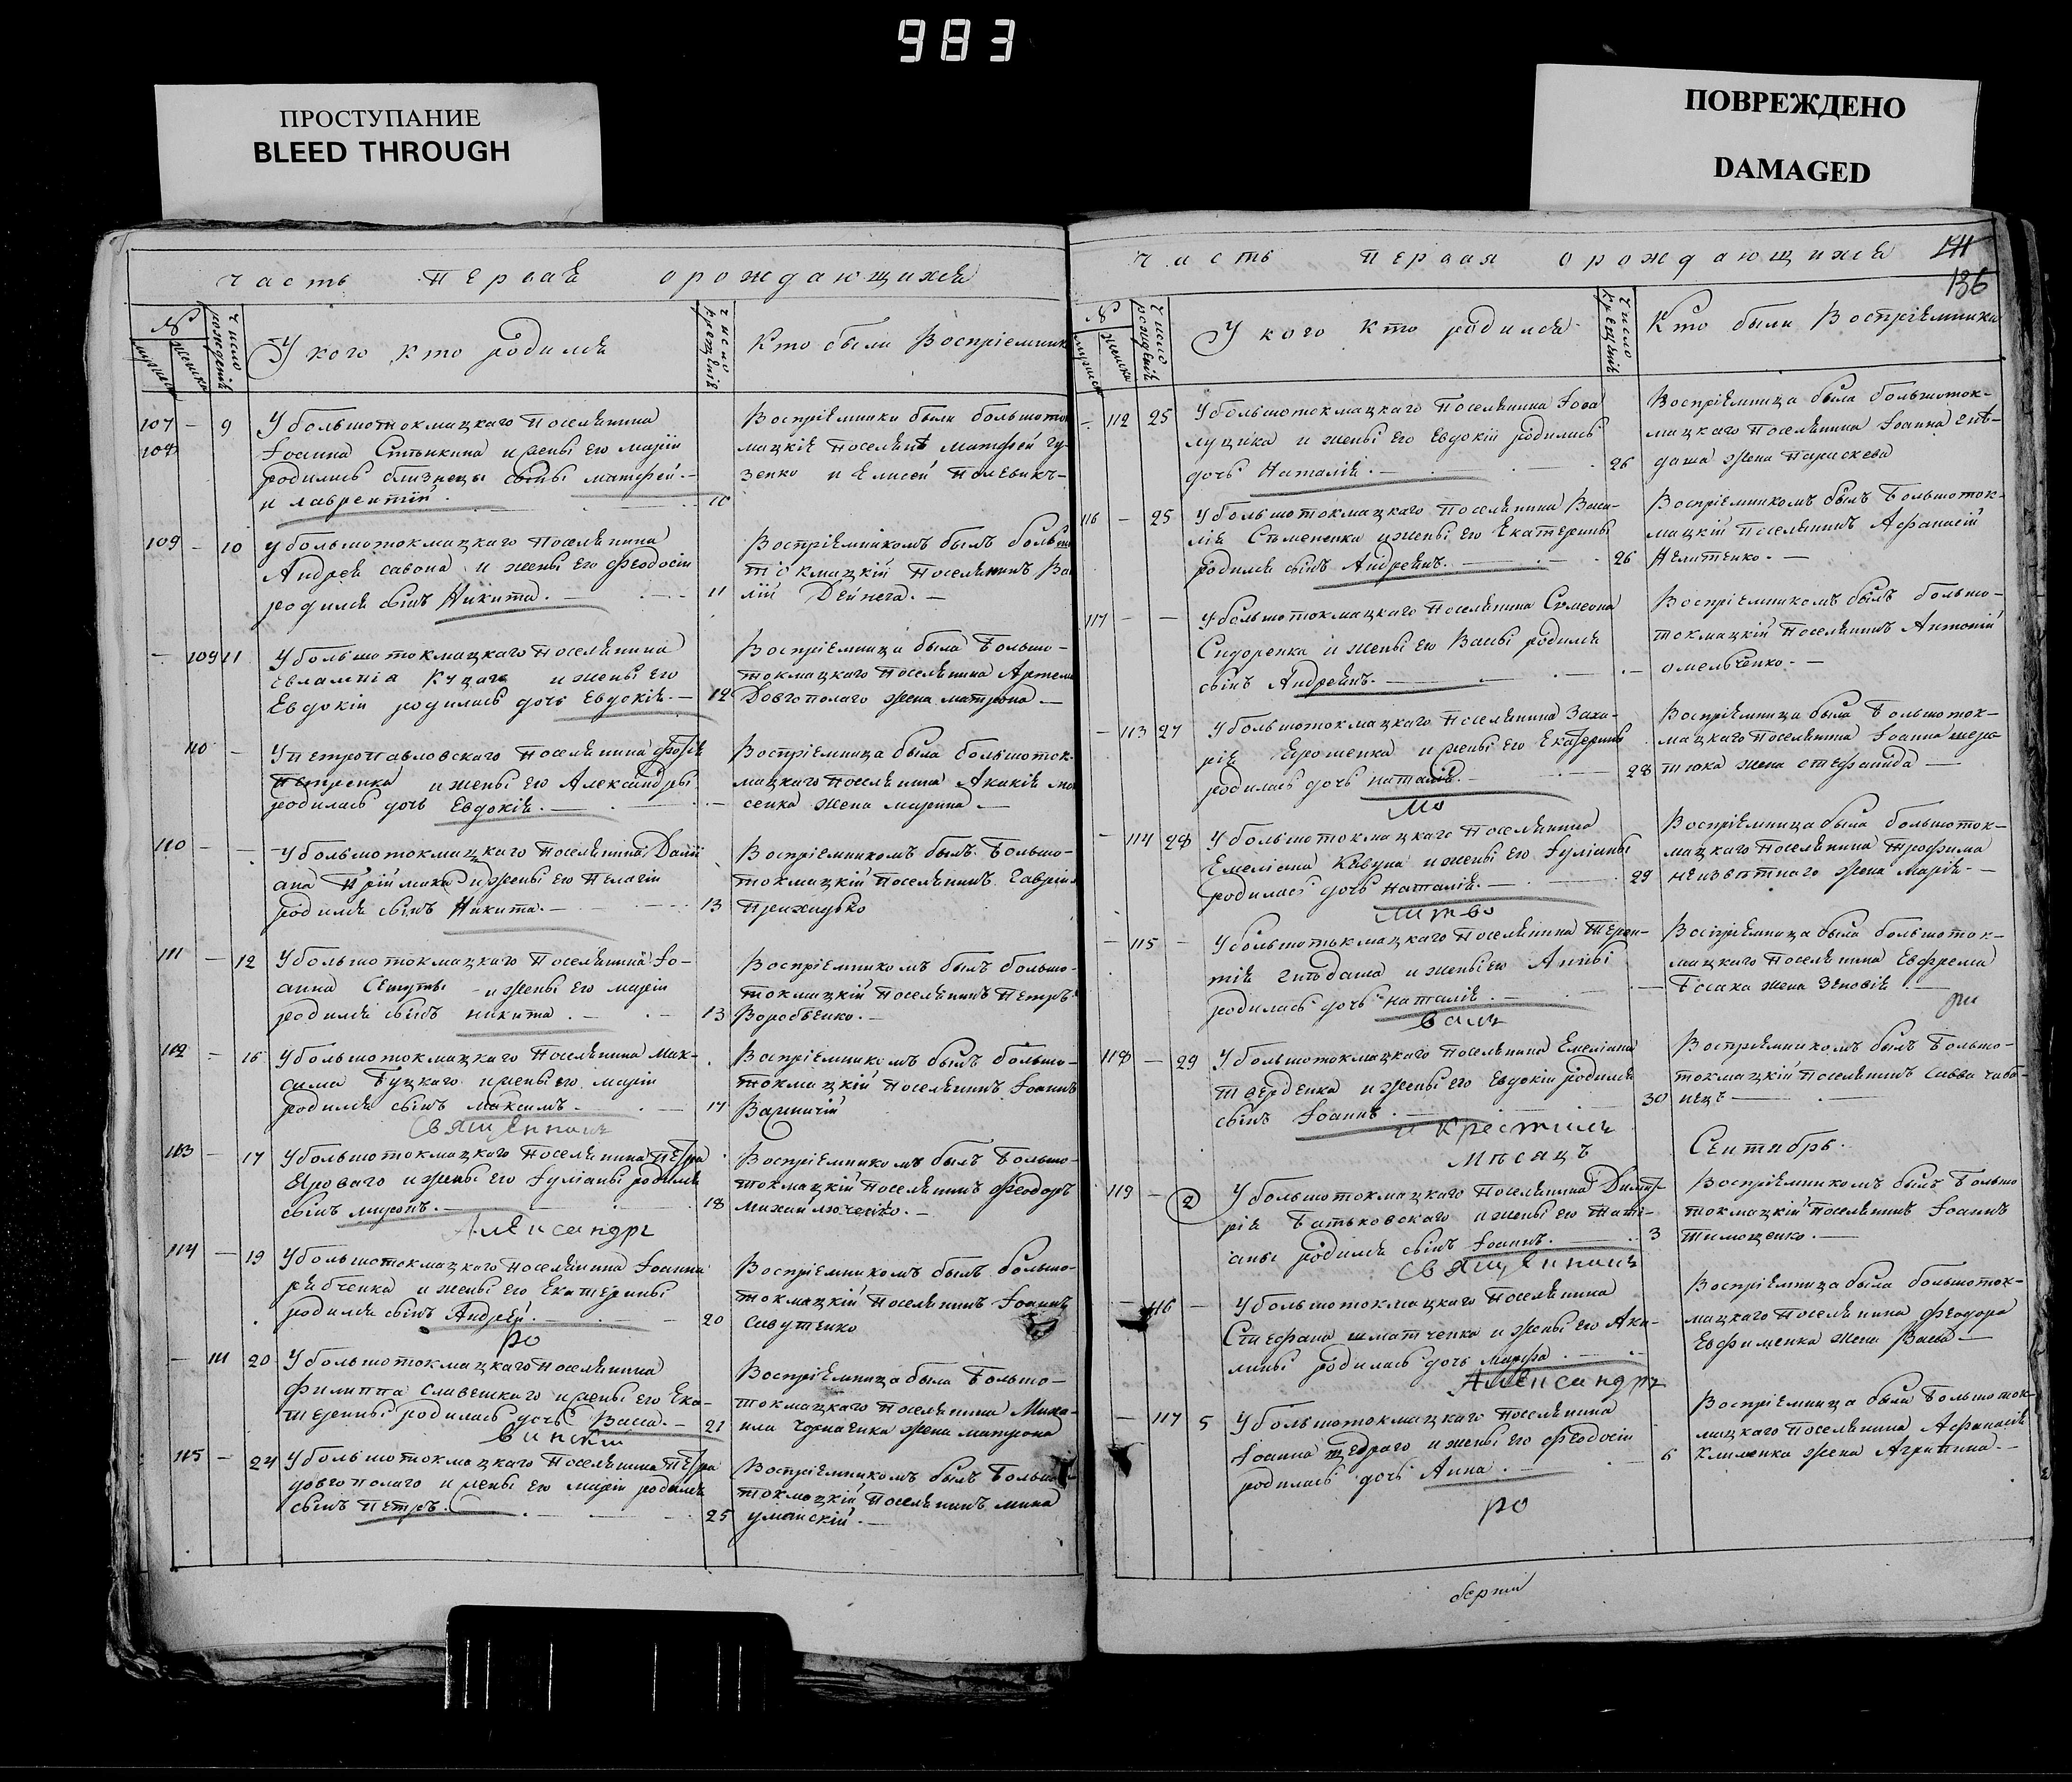 983
ПРОСТУПАНИЕ
BLEED THROUGH
ПОВРЕЖДЕНО
DAMAGED
часть Первая о рождающихся
№ Число рожденія У кого кто родился Число крещенія Кто были Воспріемник
107 – 9 У большотокмацкаго Поселянина
108 Іоанна и жены его маріи
родились близнецы сыны матфей
и лаврентій. 10
Воспріемники были большото
мацкіе Поселяне Матфей Гу-
зенко и Елисей
109 – 10 У большотокмацкаго Поселянина
Андрея савона и жены его Феодосіи
родился сынъ Никита. 11
Воспріемникомъ былъ большо
токмацкій Поселянинъ Ва
лій Дейнега. –
– 109 11 У большотокмацкаго Поселянина
Евлампія и жены его
Евдокіи родилась дочь Евдокія. – 12
Воспріемница была Большо-
токмацкаго Поселянина Артема
Довгополаго жена матрона –
110 – У петропавловскаго Поселянина
Петренка и жены его Александры
родилась дочь Евдокія. –
Воспріемница была большоток-
мацкаго Поселянина Акакія
сенка жена марина –
110 – – У большотокмацкаго Поселянина Даміи
ана Пріймака и жены его Пелагіи
родился сынъ Никита. – 13
Воспріемникомъ былъ Большо-
токмацкій Поселянинъ Гавріи
111 – 12 У большотокмацкаго Поселянина Іо-
анна и жены его маріи
родился сынъ никита. – 13
Воспріемникомъ былъ большо-
токмацкій Поселянинъ Петръ
Воробьенко. –
112 – 16 У большотокмацкаго Поселянина Мак-
сима Буцкаго и жены его маріи
родился сынъ максимъ. – 17
Воспріемникомъ былъ большо-
токмацкій Поселянинъ Іоаннъ
Священникъ
113 – 17 У большотокмацкаго Поселянина Петра
Яроваго и жены его Іуліаны родился
сынъ миронъ. – 18
Воспріемникомъ былъ Большо-
токмацкій Поселянинъ Феодоръ
михайлюченко. –
Александръ
114 – 19 У большотокмацкаго Поселянина Іоанна
рябченка и жены его Екатерины
родился сынъ Андрей. – 20
Воспріемникомъ былъ большо-
токмацкій Поселянинъ Іоаннъ
савутенко
ро
– 111 20 У большотокмацкаго Поселянина
Филиппа и жены его Ека-
терины родилась дочь Васса. – 21
Воспріемница была Большо-
токмацкаго Поселянина Миха-
ила жена матрона
115 – 24 У большотокмацкаго Поселянина Петра
довгополаго и жены его маріи родился
сынъ Петръ. 25
Воспріемникомъ былъ Большо-
токмацкій Поселянинъ мина
уманскій. –
Часть первая о рождающихся
136
№ Число рожденія У кого кто родился Число крещенія Кто были Воспріемники
– 112 25 У большотокмацкаго Поселянина Іова
луцика и жены его Евдокіи родилась
дочь Наталія. – 26
Воспріемница была большоток-
мацкаго Поселянина Іоанна
жена Параскева
116 – 25 У большотокмацкаго Поселянина Васи-
лія Семененка и жены его Екатерины
родился сынъ Андрей. 26
Воспріемникомъ былъ Большоток-
мацкій Поселянинъ Афанасій
117 – – У большотокмацкаго Поселянина Симеона
Сидоренка и жены его Вассы родился
сынъ Андрей. –
Воспріемникомъ былъ большо-
токмацкій Поселянинъ Антоній
омельченко. –
– 113 27 У большотокмацкаго Поселянина Заха-
рія Ярошенка и жены его Екатерины
родилась дочь наталія. – 28
Воспріемница была Большоток-
мацкаго Поселянина Іоанна
жена стефанида –
мо
– 114 28 У большотокмацкаго Поселянина
Емеліана Кавуна и жены его Іуліаны
родилась дочь наталія. – 29
Воспріемница была большоток-
мацкаго Поселянина Трофима
жена Марія –
лит во
– 115 – У большотокмацкаго Поселянина Терен-
тія и жены его Анны
родилась дочь наталія. –
Воспріемница была большоток-
мацкаго Поселянина Евфрема
жена Зеновія –
118 – 29 У большотокмацкаго Поселянина Емеліана
и жены его Евдокіи родился
сынъ Іоаннъ. – 30
Воспріемникомъ былъ Большо-
токмацкій Поселянинъ Савва чаба-
нецъ –
и крестилъ
Мѣсяцъ Сентябрь.
119 – 2 У большотокмацкаго Поселянина Димит-
рія Батьковскаго и жены его Тати-
аны родился сынъ Іоаннъ. – 3
Воспріемникомъ былъ Большо
токмацкій Поселянинъ Іоаннъ
Тимощенко. –
Священникъ
– 116 – У большотокмацкаго Поселянина
Стефана шматченка и жены его Аки-
лины родилась дочь марфа. –
Воспріемница была большоток-
мацкаго Поселянина Феодора
Евфименка жена Васса –
Александръ
– 117 5 У большотокмацкаго Поселянина
Іоанна щедраго и жены его Феодосіи
родилась дочь Анна. – 6
Воспріемница была Большоток-
мацкаго Поселянина Афанасія
Клименка жена Агрипина. –
ро